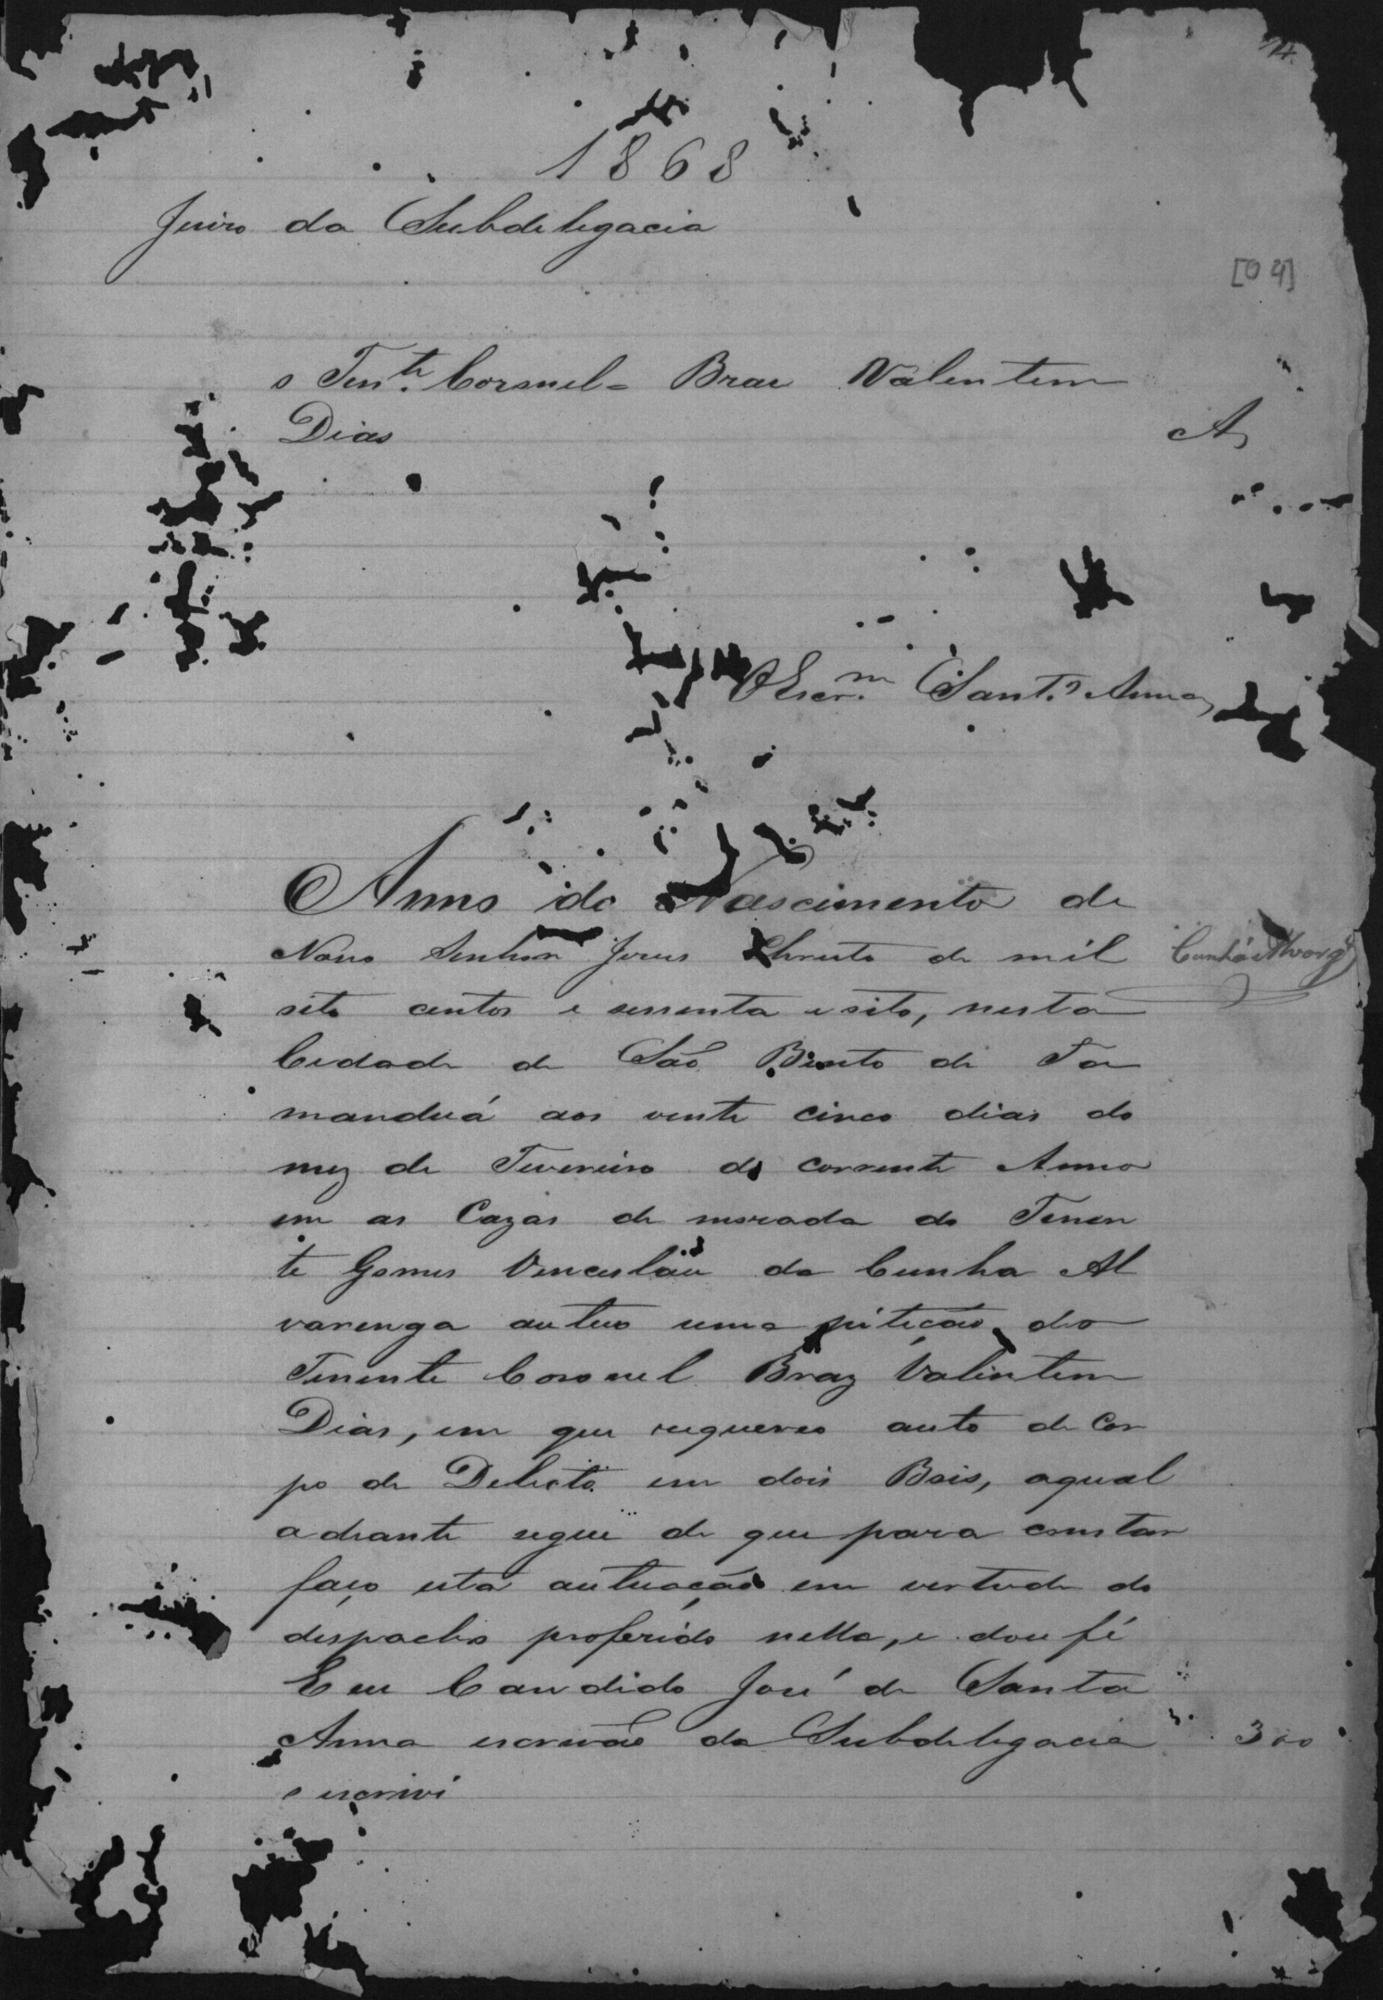 1868
Juizo da Subdelegacia
[04]
o Tenᵗᵉ. Coronel= Braz Valentim
Dias A
O Escrᵐ. Sant'Anna
Anno do Nascimento de
Nosso Senhor Jesus Christo de mil
oito centos e sessenta e oito, nesta
Cidade de São Bento do Ta
manduá aos vente cinco dias do
mez de Fevereiro do corrente Anno
em as Cazas de morada do Tenen
te Gomes Venceslau da Cunha Al
varenga autuo uma pitição do
Tenente Coronel Braz Valintim
Dias, em que requereo auto de Cor
po de Delicto em dois Bois, aqual
adeante segue de que para constar
faço esta autuação em vertude do
despacho proferido nella, e dou fé
Eu Candido José de Santa
Anna escrivão da Subdelegacia 300
o escrivi